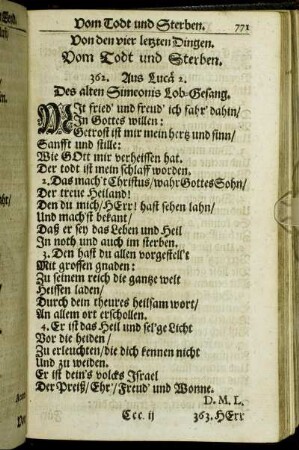 Vom Todt und Sterben. 771
Von den vier letzten Dingen.
Vom Todt und Sterben.
362. Aus Lucä 2.
Des alten Simeonis Lob-Gesang.
MIt fried' und freud' ich fahr' dahin/
In Gottes willen:
Getrost ist mir mein hertz und sinn/
Sanfft und stille:
Wie GOtt mir verheissen hat.
Der todt ist mein schlaff worden.
2. Das mach't Christus/ wahr Gottes Sohn/
Der treue Heiland!
Den du mich/ HErr! hast sehen lahn/
Und mach'st bekant/
Daß er sey das Leben und Heil
In noth und auch im sterben.
3. Den hast du allen vorgestell't
Mit grossen gnaden:
Zu seinem reich die gantze welt
Heissen laden/
Durch dein theures heilsam wort/
An allem ort erschollen.
4. Er ist das Heil und sel'ge Licht
Vor die heiden/
Zu erleuchten/ die dich kennen nicht
Und zu weiden.
Er ist dein's volcks Israel
Der Preiß/ Ehr'/ Freud' und Wonne.
D. M. L.
Ccc ij 363. HErr